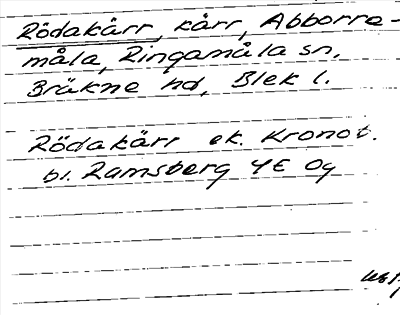 Rödakärr, kärr, Abborre-
måla, Ringamåla sn,
Bräkne hd, Blek l.
Rödakärr ek. Kronot.
bl. Ramsberg 4E Og